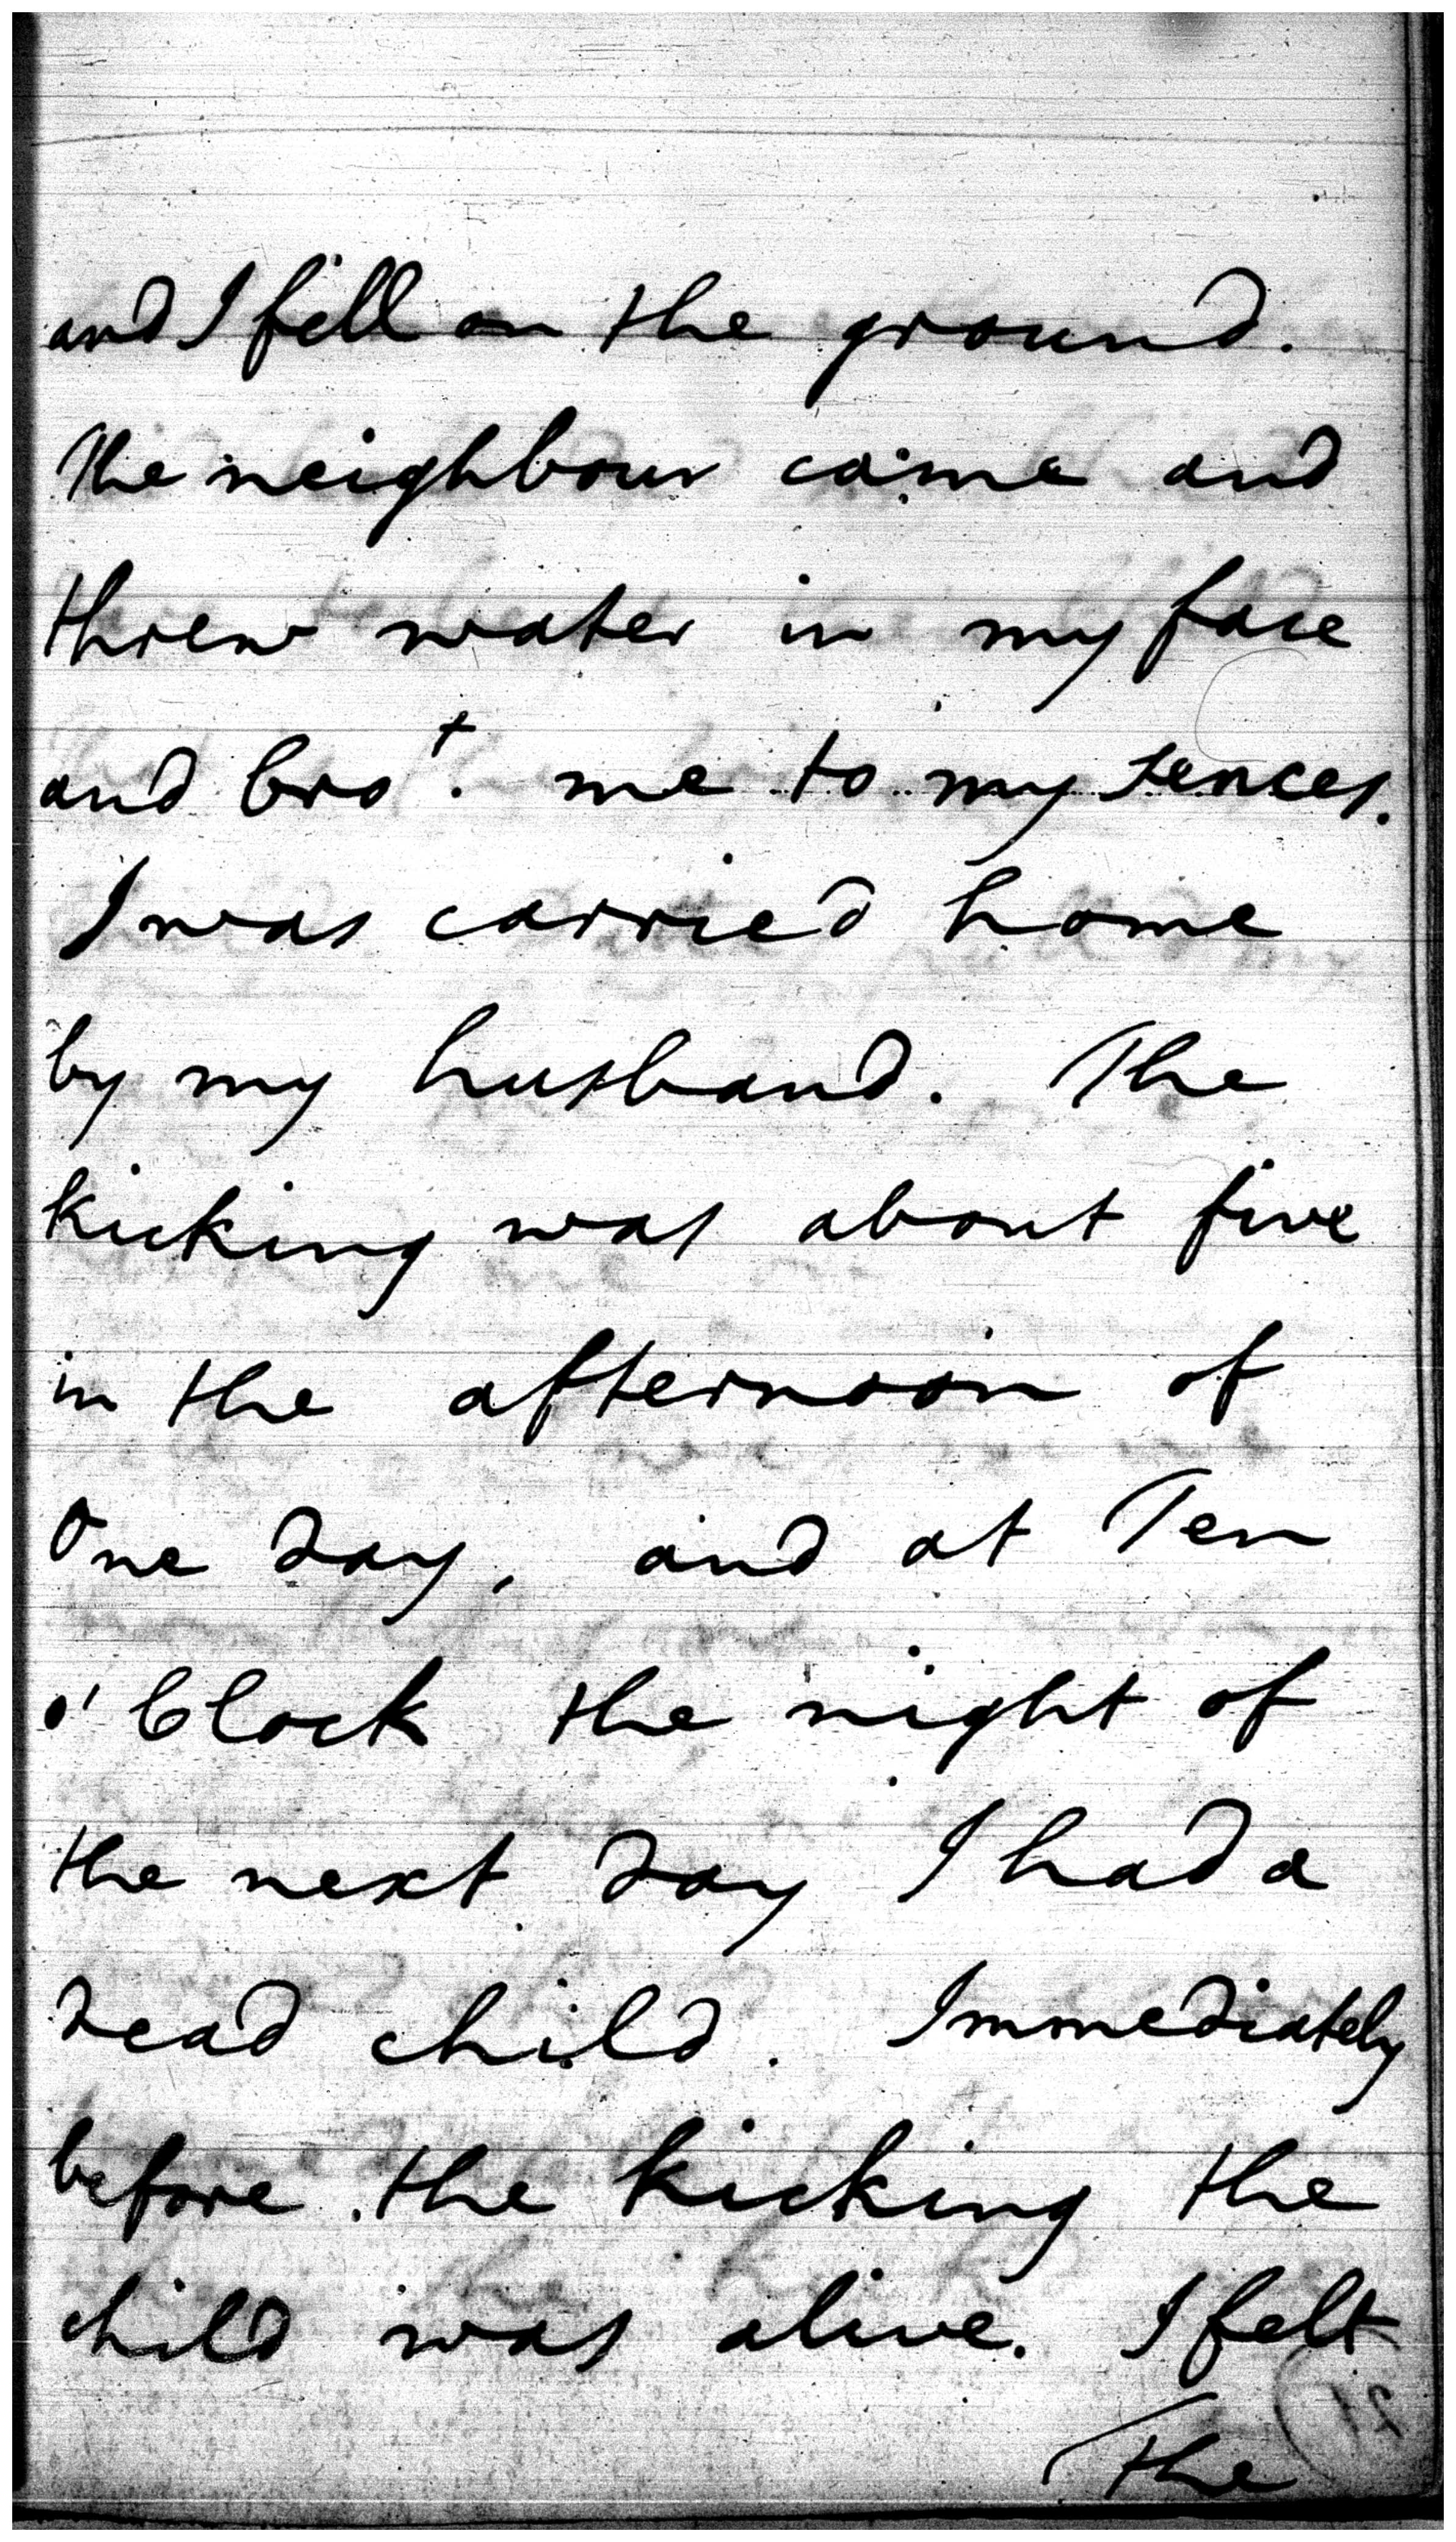 and I fell on the ground.
The neighbour came and
threw water in my face
and bro^t. me to my sences.
I was carried home
by my husband. The
kicking was about five
in the afternoon of
One day, and at Ten
o'Clock the night of
the next day I had a
dead child. Immediately
before the kicking the
child was alive. I felt
The